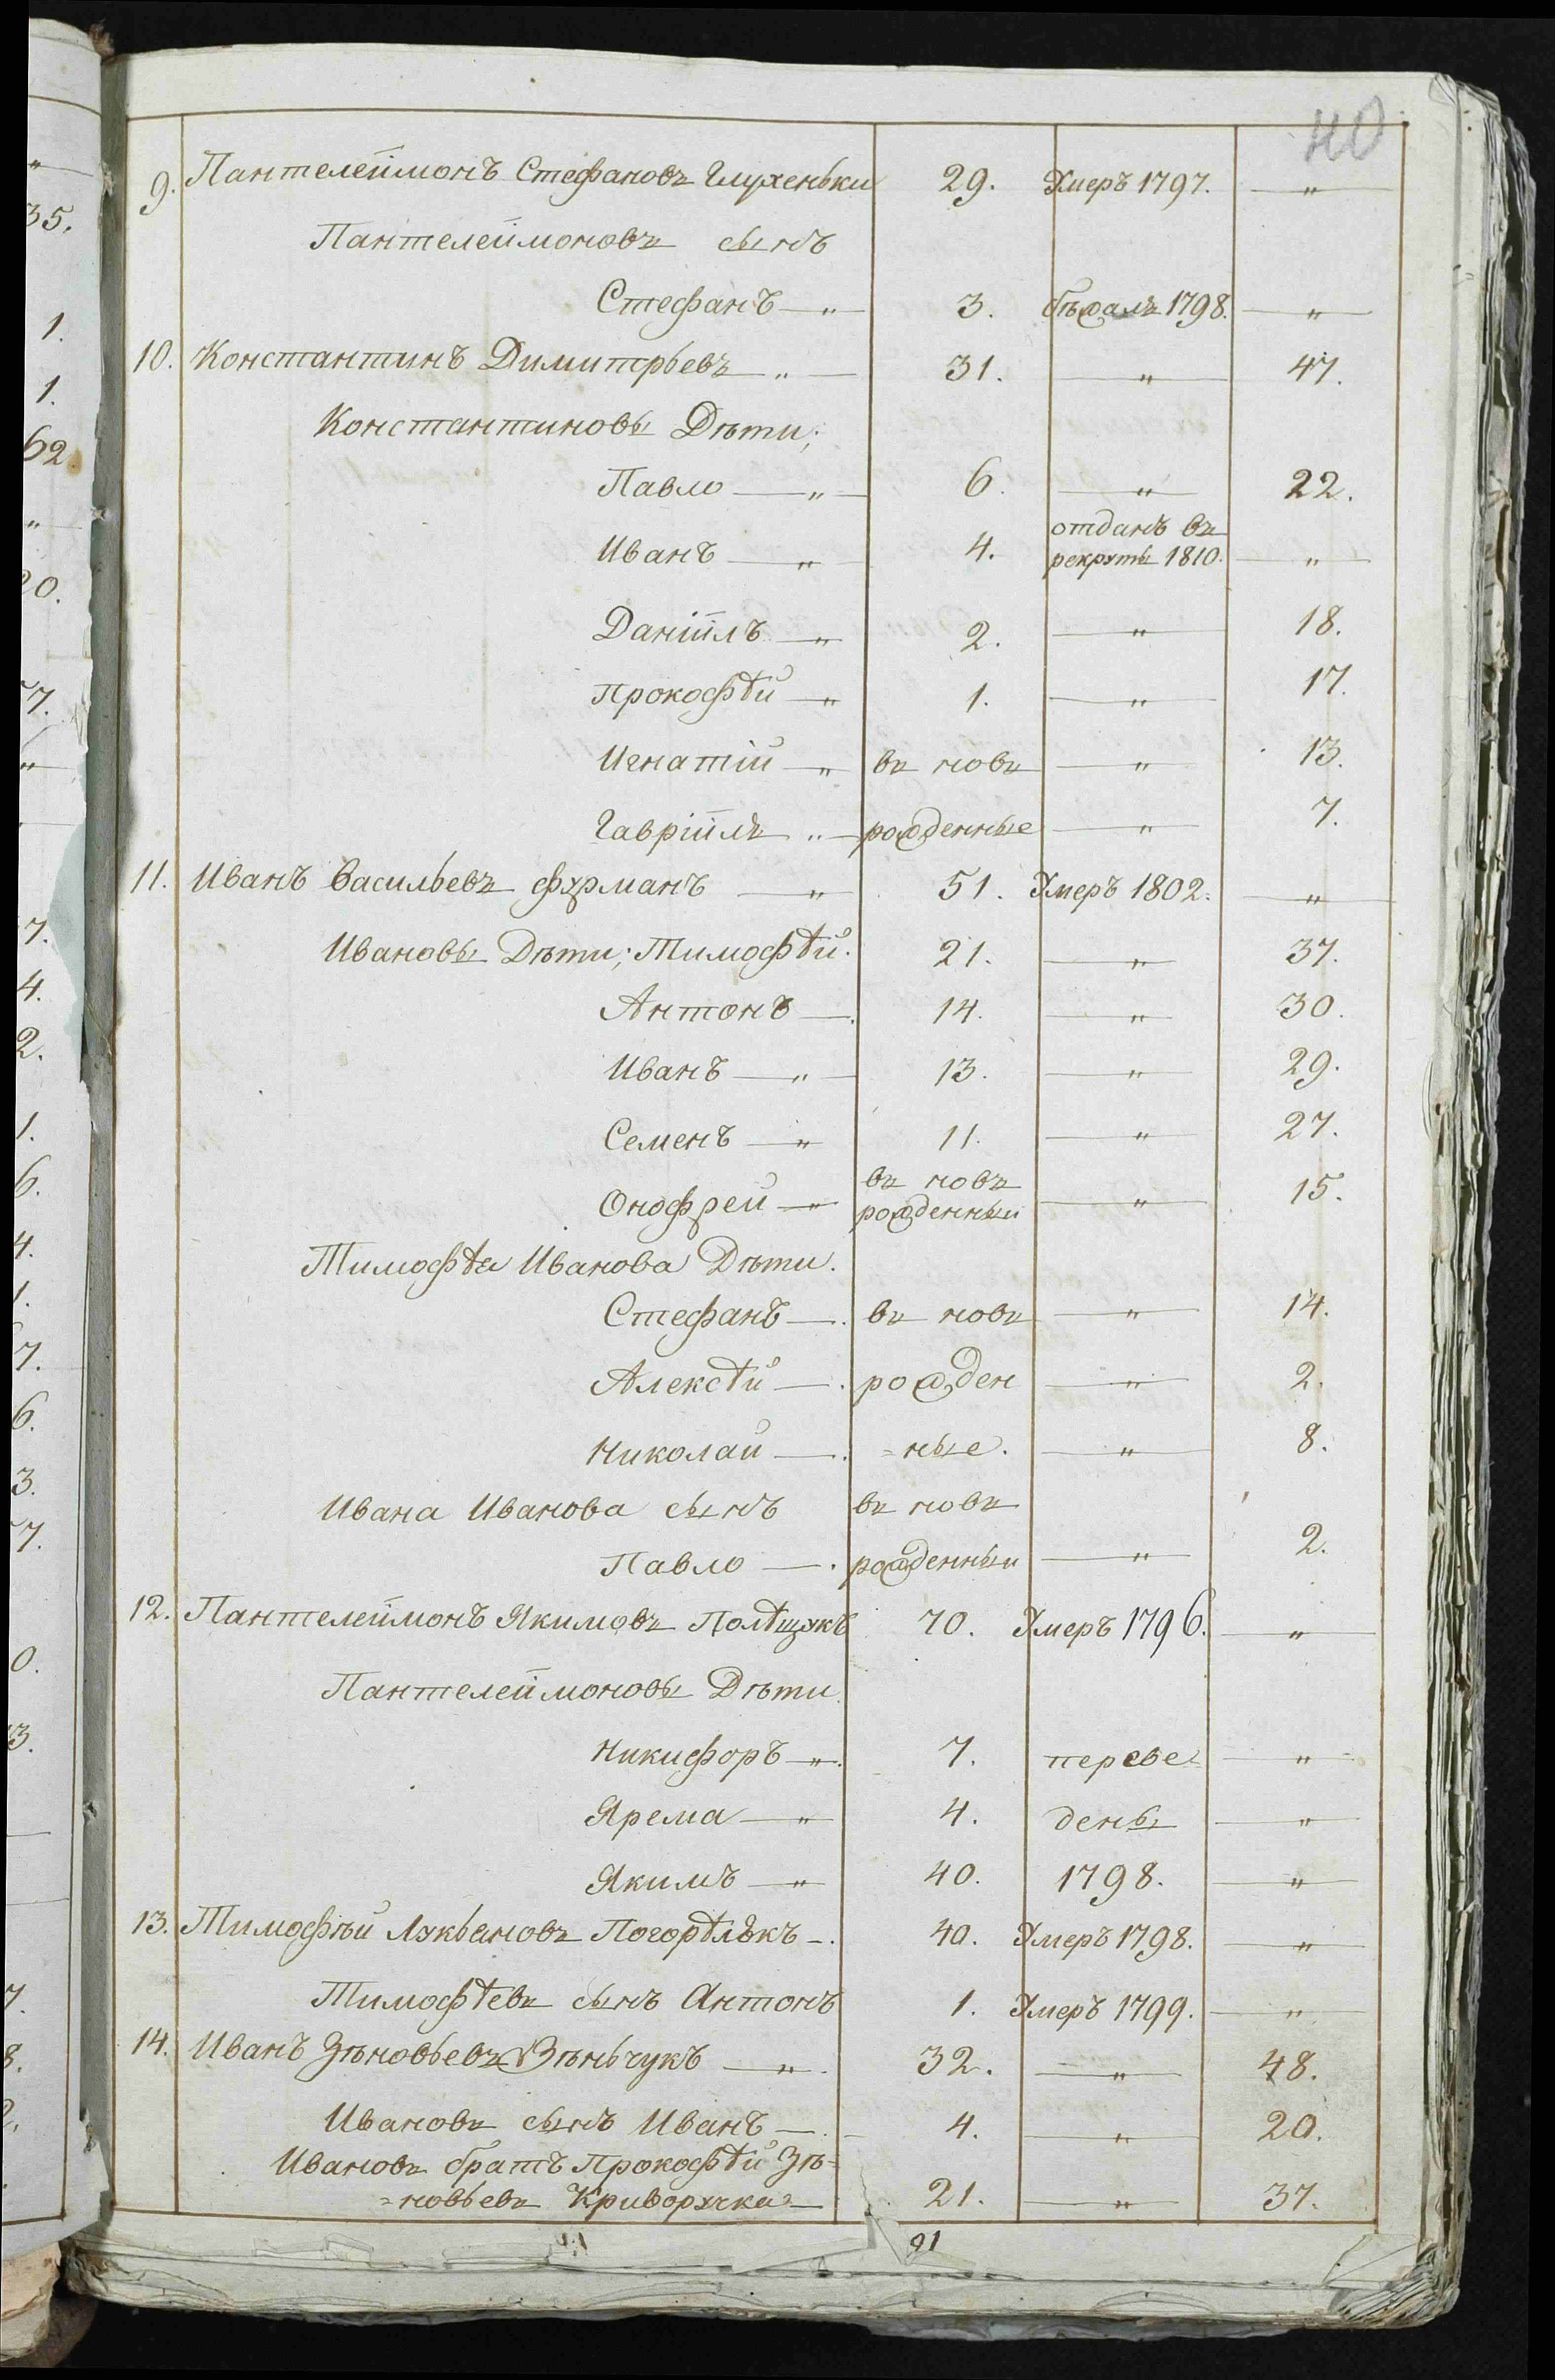 40
9. Пантелеймонъ Стефановъ Глухеньки 29. Умеръ 1797. — " —
Пантелеймоновъ сынъ
Стефанъ — " — 3. бѣжалъ 1798. — " —
10. Константинъ Димитрьевъ " — 31. — " — 47.
Константиновы Дѣти;
Павло — " — 6. — " — 22.
Иванъ — " — 4. отданъ въ
рекруты 1810. — " —
Даніилъ — " 2. — " — 18.
Прокофѣй — " 1. — " — 17.
Игнатій — " въ новъ — " — 13.
Гавріилъ " — рожденные — " — 7.
11. Иванъ Васильевъ Фурманъ — " — 51. Умеръ 1802. — " —
Ивановы Дѣти; Тимофѣй. 21. — " — 37.
Антонъ — . 14. — " — 30.
Иванъ — " — 13. — " — 29.
Семенъ — " 11. — " — 27.
Онофрей — " въ новъ
рожденный — " — 15.
Тимофѣя Иванова Дѣти.
Стефанъ — . въ новъ — " — 14.
Алексѣй — . рожден — " — 2.
Николай — . =ные. — " — 8.
Ивана Иванова сынъ въ новъ
Павло — . рожденный — " — 2.
12. Пантелеймонъ Якимовъ Полѣщукъ 70. Умеръ 1796. — " —
Пантелеймоновы Дѣти
Никифоръ — " . 7. переве= — " —
Ярема — " 4. дены — " —
Якимъ — " 40. 1798. — " —
13. Тимофѣй Лукьяновъ Погорѣлъкъ — . 40. Умеръ 1798. — " —
Тимофѣевъ сынъ Антонъ 1. Умеръ 1799. — " —
14. Иванъ Зѣновьевъ Зѣньчукъ — " . 32. — " — 48.
Ивановъ сынъ Иванъ — . 4. — " — 20.
Ивановъ братъ Прокофѣй Зѣ=
=новьевъ Криворучка — 21. — " — 37.
91